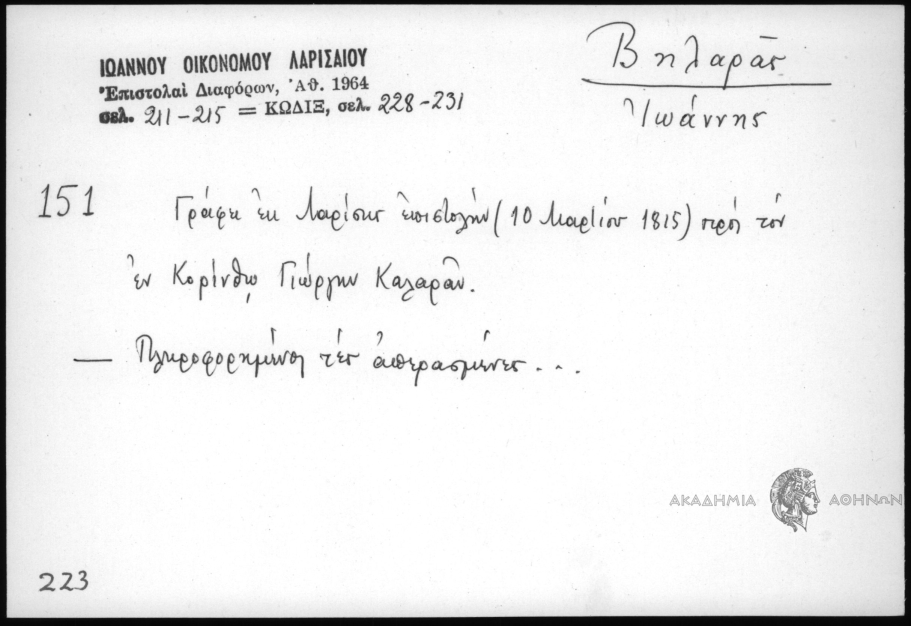 ΙΩΑΝΝΟΥ ΟΙΚΟΝΟΜΟΥ ΛΑΡΙΣΑΙΟΥ
Ἐπιστολαὶ Διαφόρων, Ἀθ. 1964
σελ. 211-215 = ΚΩΔΙΞ, σελ. 228-231
Βηλαρᾶς
Ἰωάννης
151 Γράφει ἐκ Λαρίσης ἐπιστολήν (10 Μαρτίου 1815) πρὸς τὸν
ἐν Κορίνθῳ Γιώργην Καλαρᾶν.
— Πληροφορημένος τὲς ἀπερασμένες...
ΑΚΑΔΗΜΙΑ ΑΘΗΝΩΝ
223